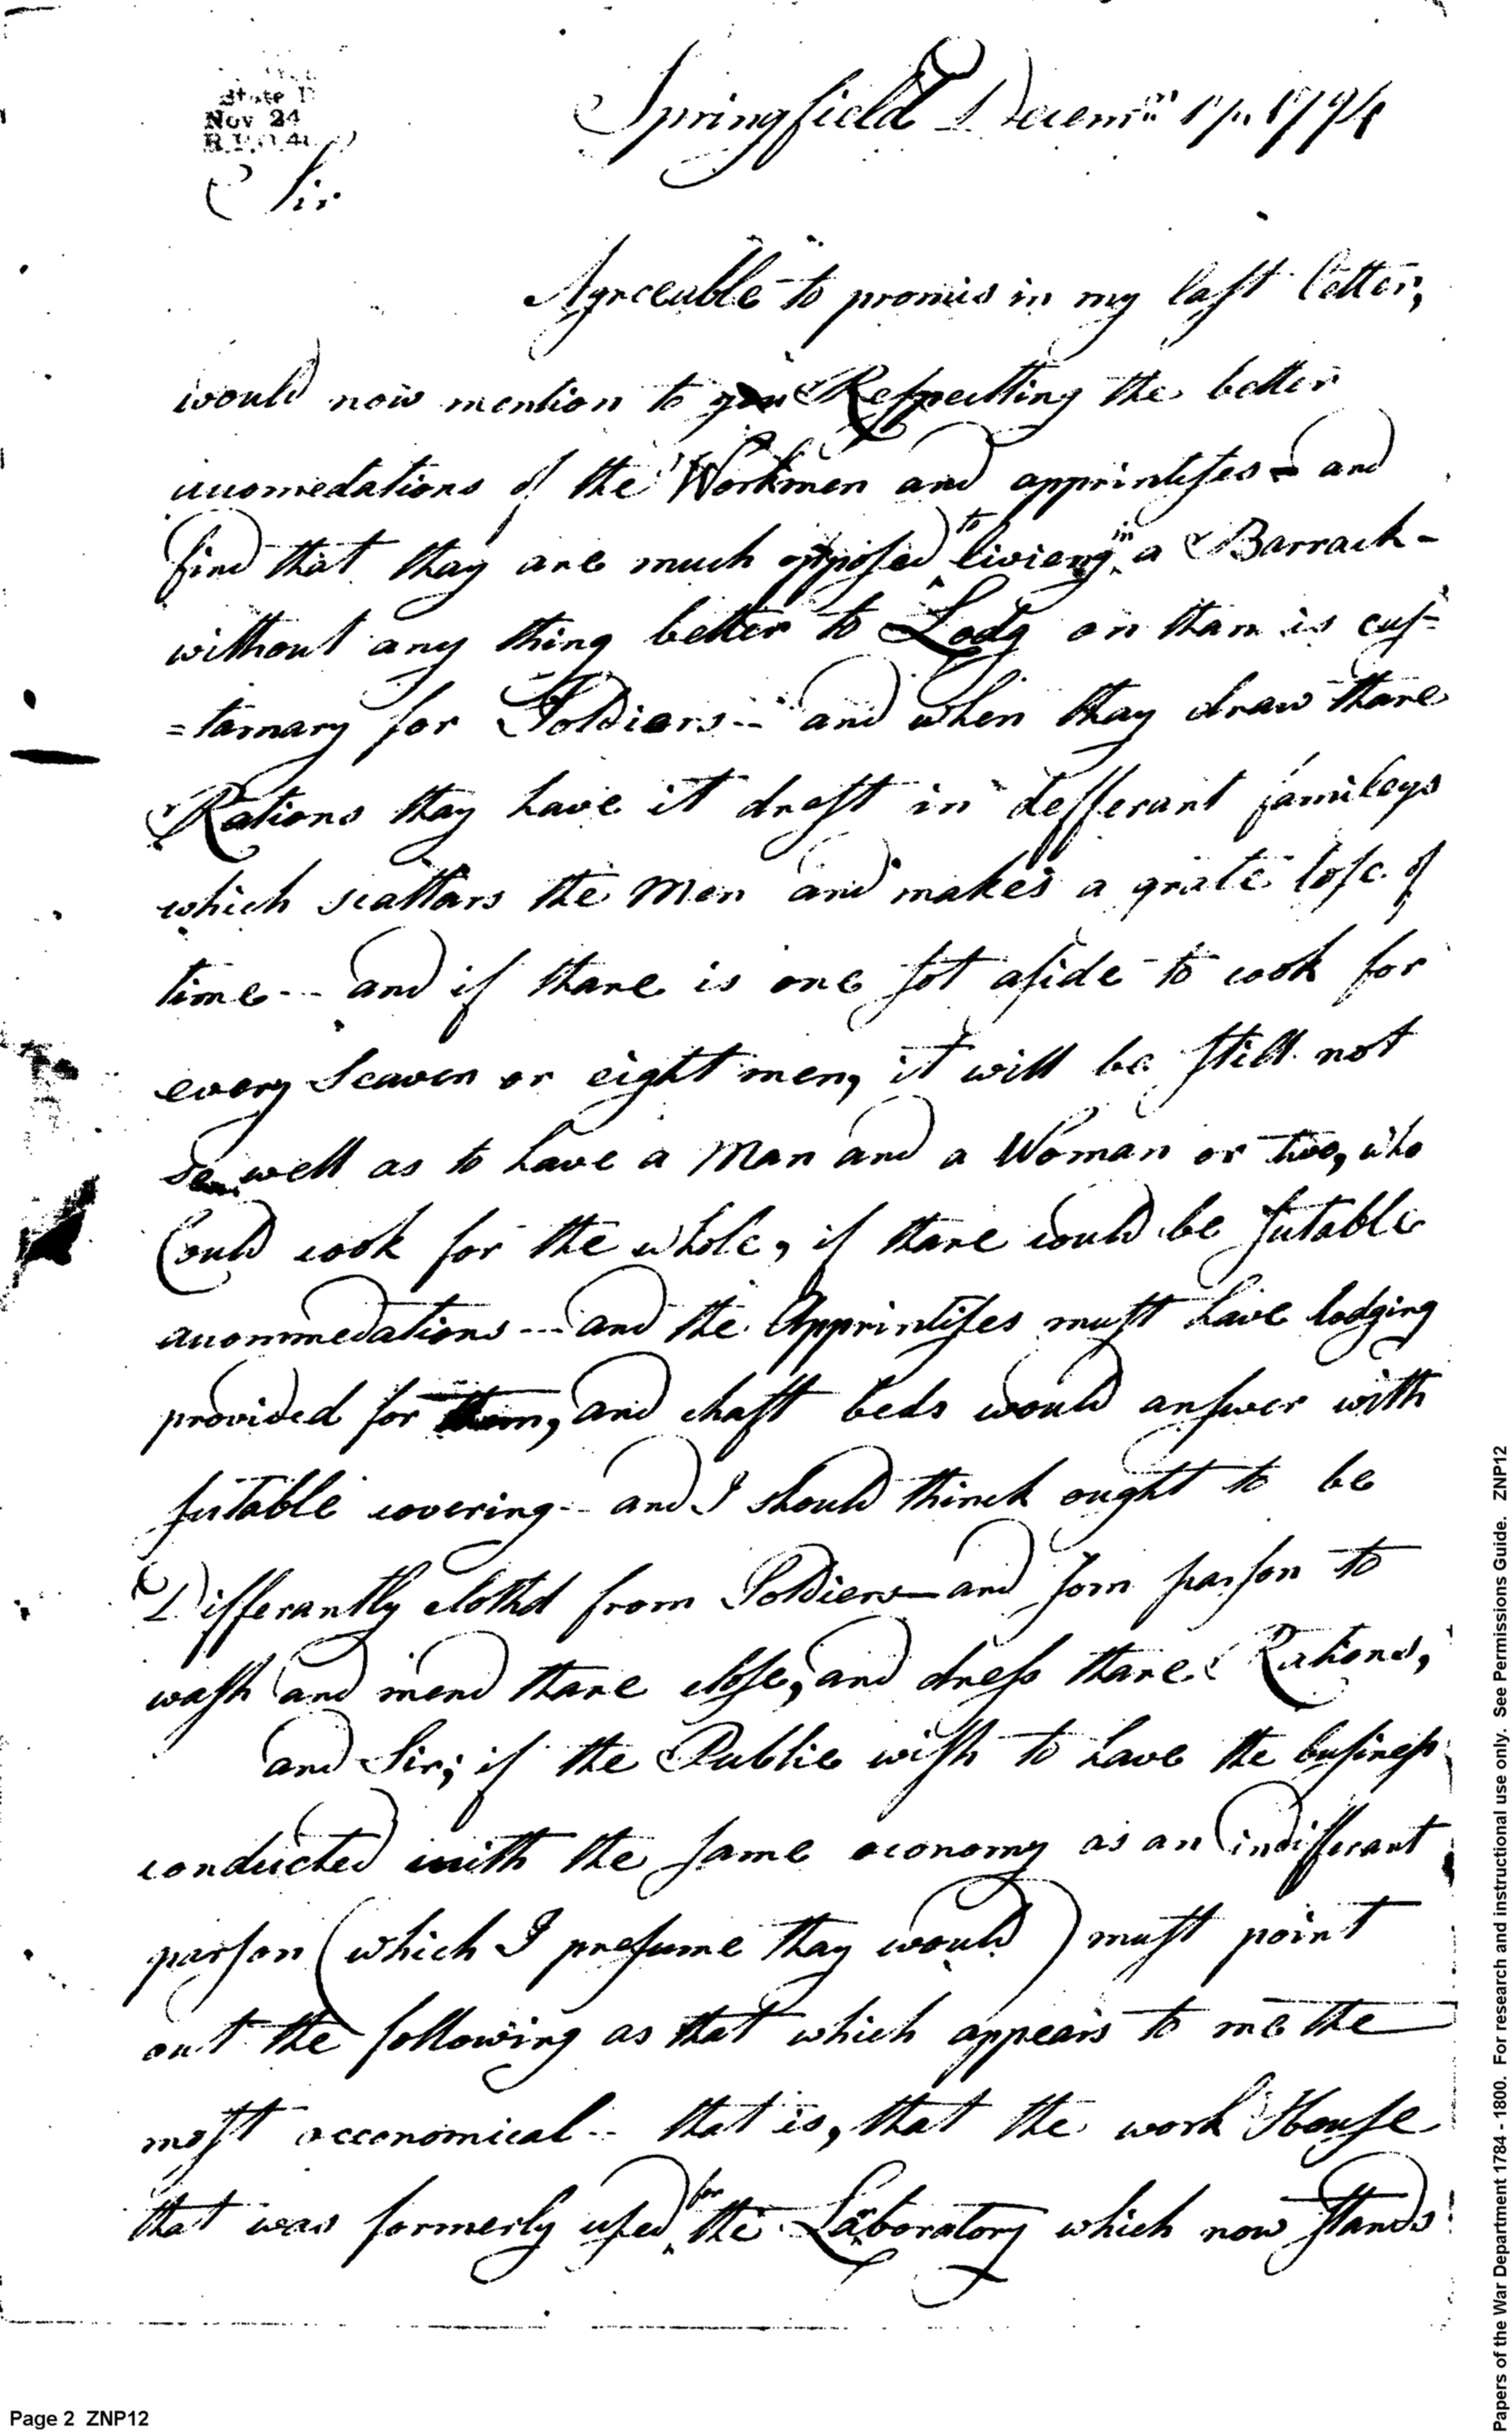 State D
Nov 24
Springfield Decemr 1794
Sir
Agreeable to promis in my last letter,
would now mention to you Respectting the better
accomedations of the Workmen and apprintises - and
find that thay are much opposed to liveing in a Barrack -
without any thing better to Lodg on than is cus=
=tamary for Soldiars -- and when thay draw thare
Rations thay have it drest in defferant famileys
which scattars the Men and makes a grate lose of
time -- and if thare is one sot aside to cook for
every Seaven or eight men, it will be still not
so well as to have a Man and a Woman or two, who
Could cook for the whole, if thare could be sutable
acommedations --- and the Apprintises must have lodging
provided for them, and chaff beds would answer with
sutable covering -- and I should thinck ought to be
Differantly clothd from Soldiers - and som parson to
wash and mend thare close, and dress thare Rations,
and Sir; if the Public wish to have the business
conducted with the same oconomy as an indifferant
parson (which I presume thay would) must point
out the following as that which appears to me the
most occonomical -- that is, that the work House
that was formerly used for the Laboratory which now stands
Page 2 ZNP12
Papers of the War Department 1784 - 1800. For research and instructional use only. See Permissions Guide. ZNP12